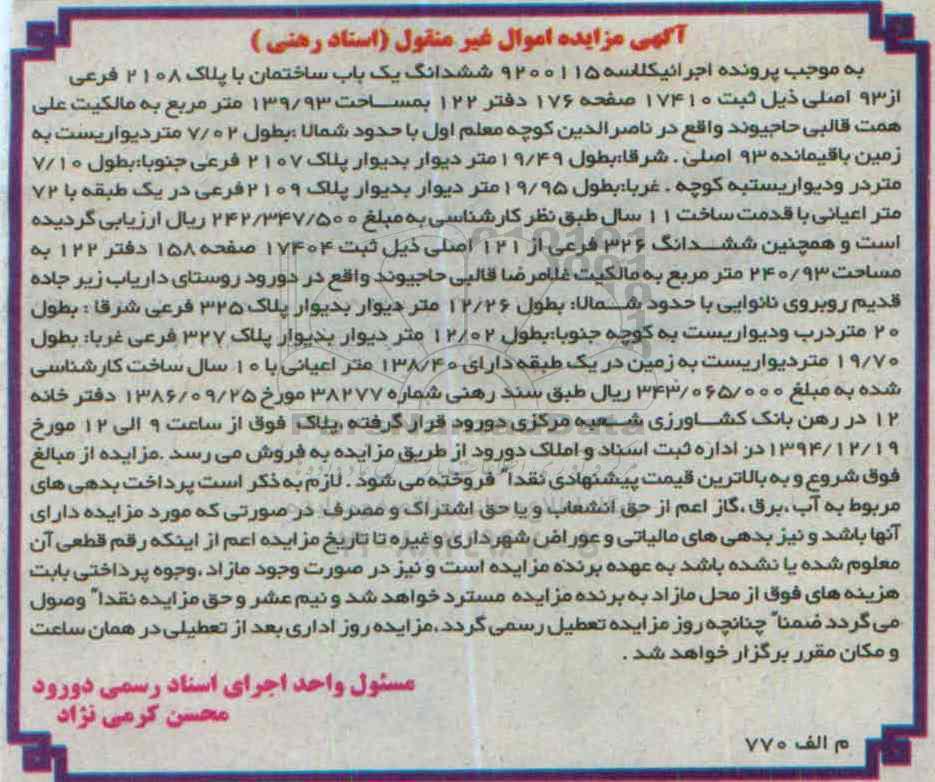 آگهی مزایده اموال غیر منقول (اسناد رهنی )
به موجب پرونده اجرائیکلاسه ۹۲۰۰۱۱۵ ششدانگ یک باب ساختمان با پلاک ۲۱۰۸ فرعی
از۹۳ اصلی ذیل ثبت ۱۷۴۱۰ صفحه ۱۷۶ دفتر ۱۲۲ بمساحت ۱۳۹/۹۳ متر مربع به مالکیت علی
همت قالبی حاجیوند واقع در ناصرالدین کوچه معلم اول با حدود شمالا :بطول ۷/۰۲ متردیواریست به
زمین باقیمانده ۹۳ اصلی . شرقا:بطول ۱۹/۴۹متر دیوار بدیوار پلاک ۲۱۰۷ فرعی جنوبا:بطول ۷/۱۰
متردر ودیواریستبه کوچه . غربا:بطول ۱۹/۹۵متر دیوار بدیوار پلاک ۲۱۰۹فرعی در یک طبقه با ۷۲
متر اعیانی با قدمت ساخت ۱۱ سال طبق نظر کارشناسی به مبلغ ۲۴۲/۳۴۷/۵۰۰ ریال ارزیابی گردیده
است و همچنین ششدانگ ۳۲۶ فرعی از ۱۲۱ اصلی ذیل ثبت ۱۷۴۰۴ صفحه ۱۵۸ دفتر ۱۲۲ به
مساحت ۲۴۰/۹۳ متر مربع به مالکیت غلامرضا قالبی حاجیوند واقع در دورود روستای داریاب زیر جاده
قدیم روبروی نانوایی با حدود شمالا: بطول ۱۲/۲۶ متر دیوار بدیوار پلاک ۳۲۵ فرعی شرقا : بطول
۲۰ متردرب ودیواریست به کوچه جنوبا:بطول ۱۲/۰۲ متر دیوار بدیوار پلاک ۳۲۷ فرعی غربا: بطول
۱۹/۷۰ متردیواریست به زمین در یک طبقه دارای ۱۳۸/۴۰ متر اعیانی با ۱۰ سال ساخت کارشناسی
شده به مبلغ ۳۴۳/۰۶۵/۰۰۰ ریال طبق سند رهنی شماره ۳۸۲۷۷ مورخ ۱۳۸۶/۰۹/۲۵ دفتر خانه
۱۲ در رهن بانک کشاورزی شعبه مرکزی دورود قرار گرفته ،پلاک فوق از ساعت ۹ الی ۱۲ مورخ
۱۳۹۴/۱۲/۱۹در اداره ثبت اسناد و املاک دورود از طریق مزایده به فروش می رسد .مزایده از مبالغ
فوق شروع و به بالاترین قیمت پیشنهادی نقدا" فروخته می شود . لازم به ذکر است پرداخت بدهی های
مربوط به آب ،برق ،گاز اعم از حق انشعاب و یا حق اشتراک و مصرف در صورتی که مورد مزایده دارای
آنها باشد و نیز بدهی های مالیاتی و عوارض شهرداری و غیره تا تاریخ مزایده اعم از اینکه رقم قطعی آن
معلوم شده یا نشده باشد به عهده برنده مزایده است و نیز در صورت وجود مازاد ،وجوه پرداختی بابت
هزینه های فوق از محل مازاد به برنده مزایده مسترد خواهد شد و نیم عشر و حق مزایده نقدا" وصول
می گردد ضمنا" چنانچه روز مزایده تعطیل رسمی گردد ،مزایده روز اداری بعد از تعطیلی در همان ساعت
و مکان مقرر برگزار خواهد شد .
مسئول واحد اجرای اسناد رسمی دورود
محسن کرمی نژاد
م الف ۷۷۰